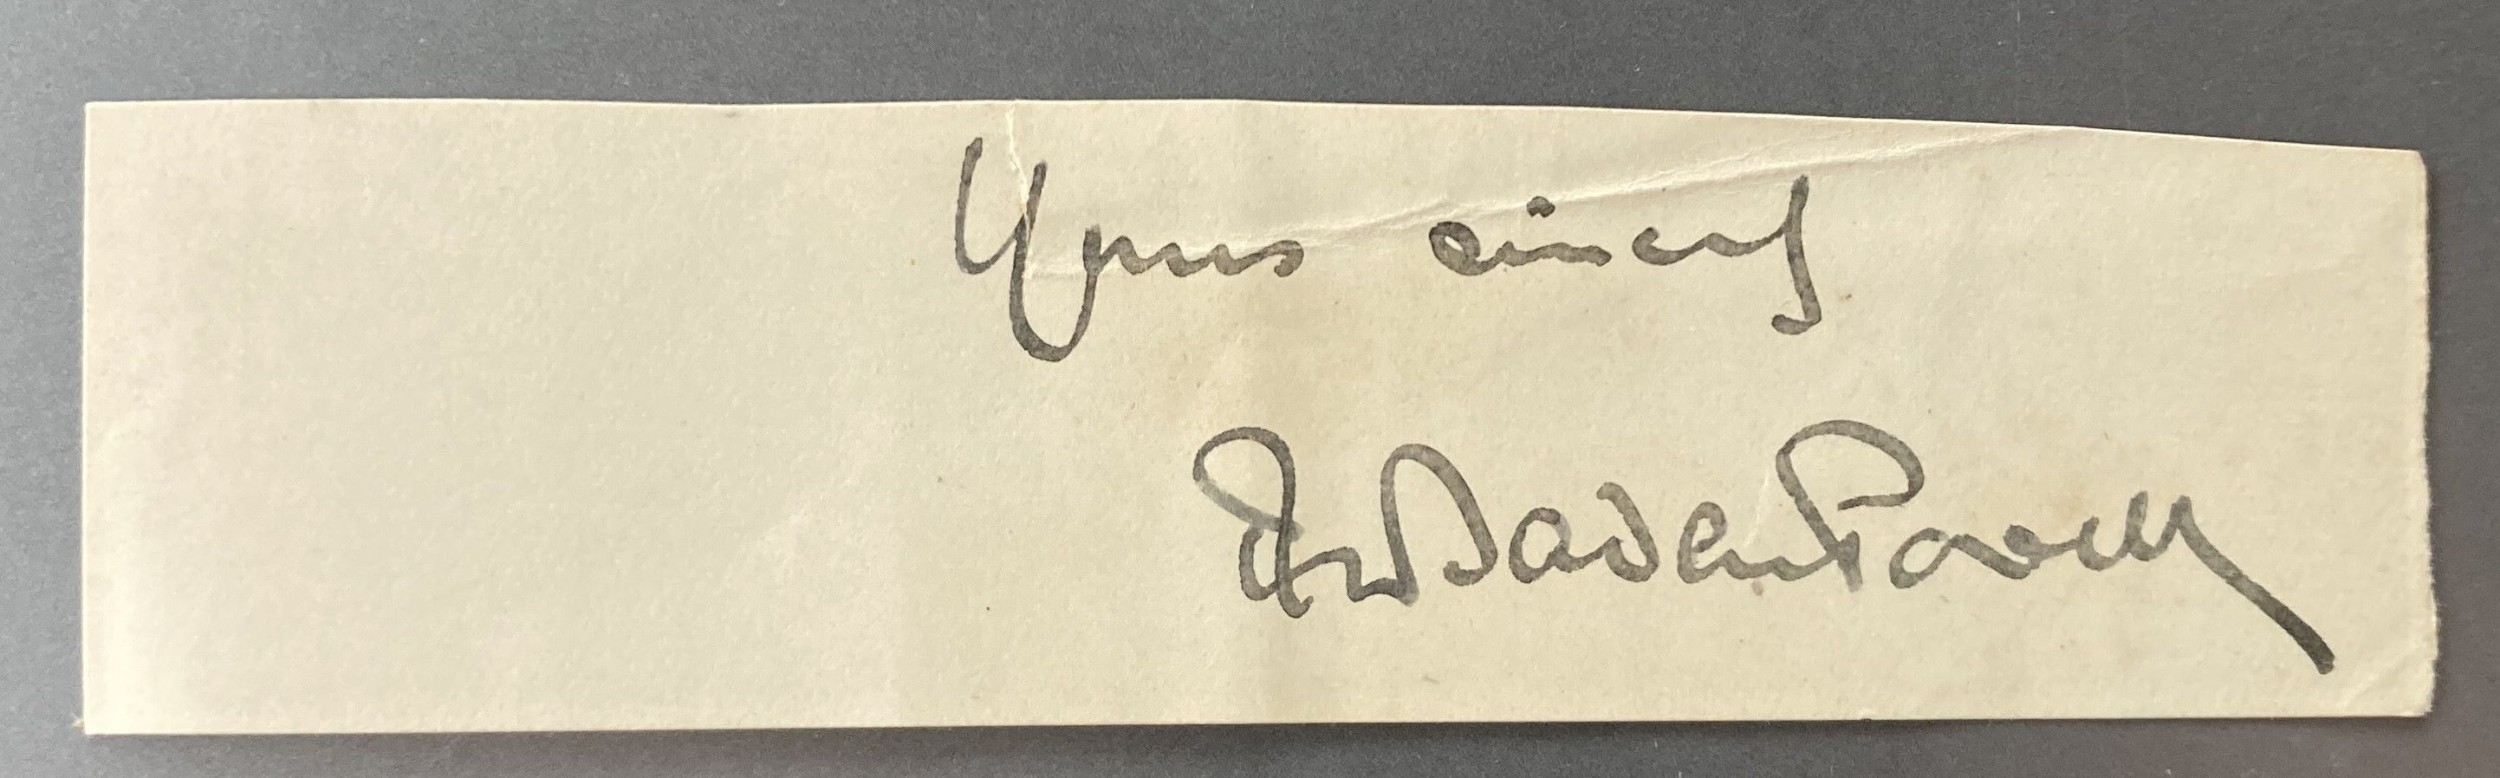 Yours sincerely
Baden Powell